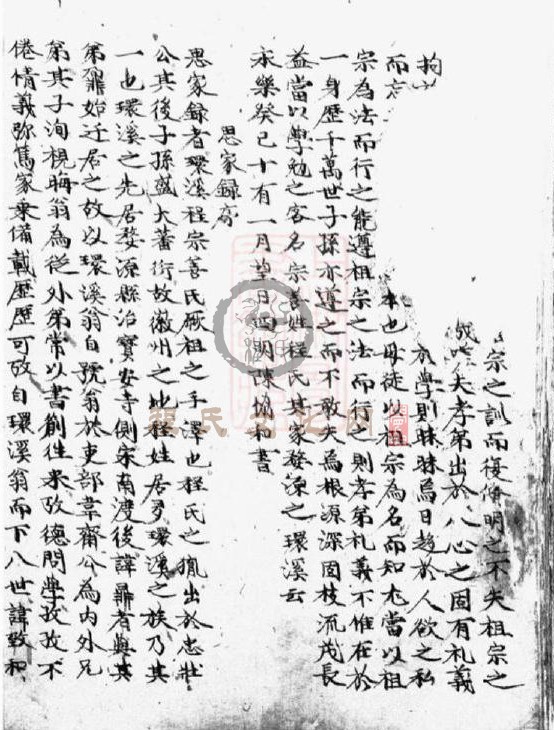 宗之訓而復脩明之不失祖宗之
夫孝弟出於人心之固有礼義
於學則昧昧焉日趨於人欲之私
拘
而忘本也毋徒以祖宗為名而知尤當以祖
宗為法而行之能遵祖宗之法而行之則孝弟礼義不惟在於
一身歷千萬世子孫亦遵之而不敢失焉根源深固枝流茂長
益當以學勉之客名宗善姓程氏其家婺源之環溪云
永樂癸巳十有一月望日四明陳 書
思家録序
思家録者環溪程宗善氏厥祖之手澤也程氏之 出於忠壯
公其後子孫盛大蕃衍故徽州之地程姓居多環溪之族乃其
一也環溪之先居婺源縣治寶安寺側宋南渡後諱鼐者與其
弟鼏始迁居之故以環溪翁自號翁於吏部韋齋公為内外兄
弟其子洵視晦翁為從外弟常以書劄徃来攷德問學孜孜不
倦情義弥篤家乗備載歷歷可攷自環溪翁而下八世諱致和
程氏文化网